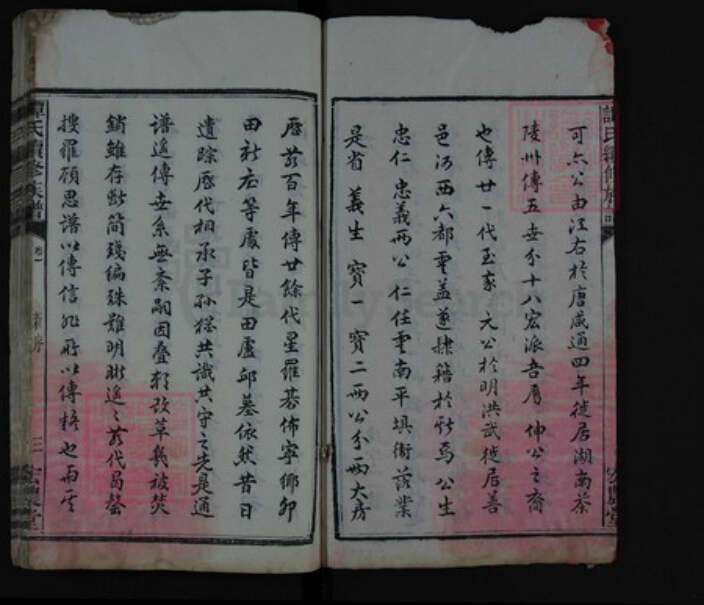 可六公由江右於唐咸通四年徙居湖南茶
陵州傳五世分十八宏派吾房伸公之裔
也傳廿一代玉家 元公於明洪武徙居善
邑河西六都雲蓋遂隸籍於斯焉公生
忠仁 忠義兩公 仁住雲南平填衛落業
是省 義生 寶一 寶二兩公分兩大房
歷茲百年傳廿餘代星羅碁佈寧鄉
田 等處皆是田廬邱墓依然昔日
遺踪歷代相承子孫猶共識共守之先是通
譜遙傳世系無紊嗣因疊 改革氣被焚
銷雖存斷簡殘編殊難明晰遙遙 代曷罄
搜羅顧思譜以傳信 所以傳 也而
氏續修族譜
卷一
三